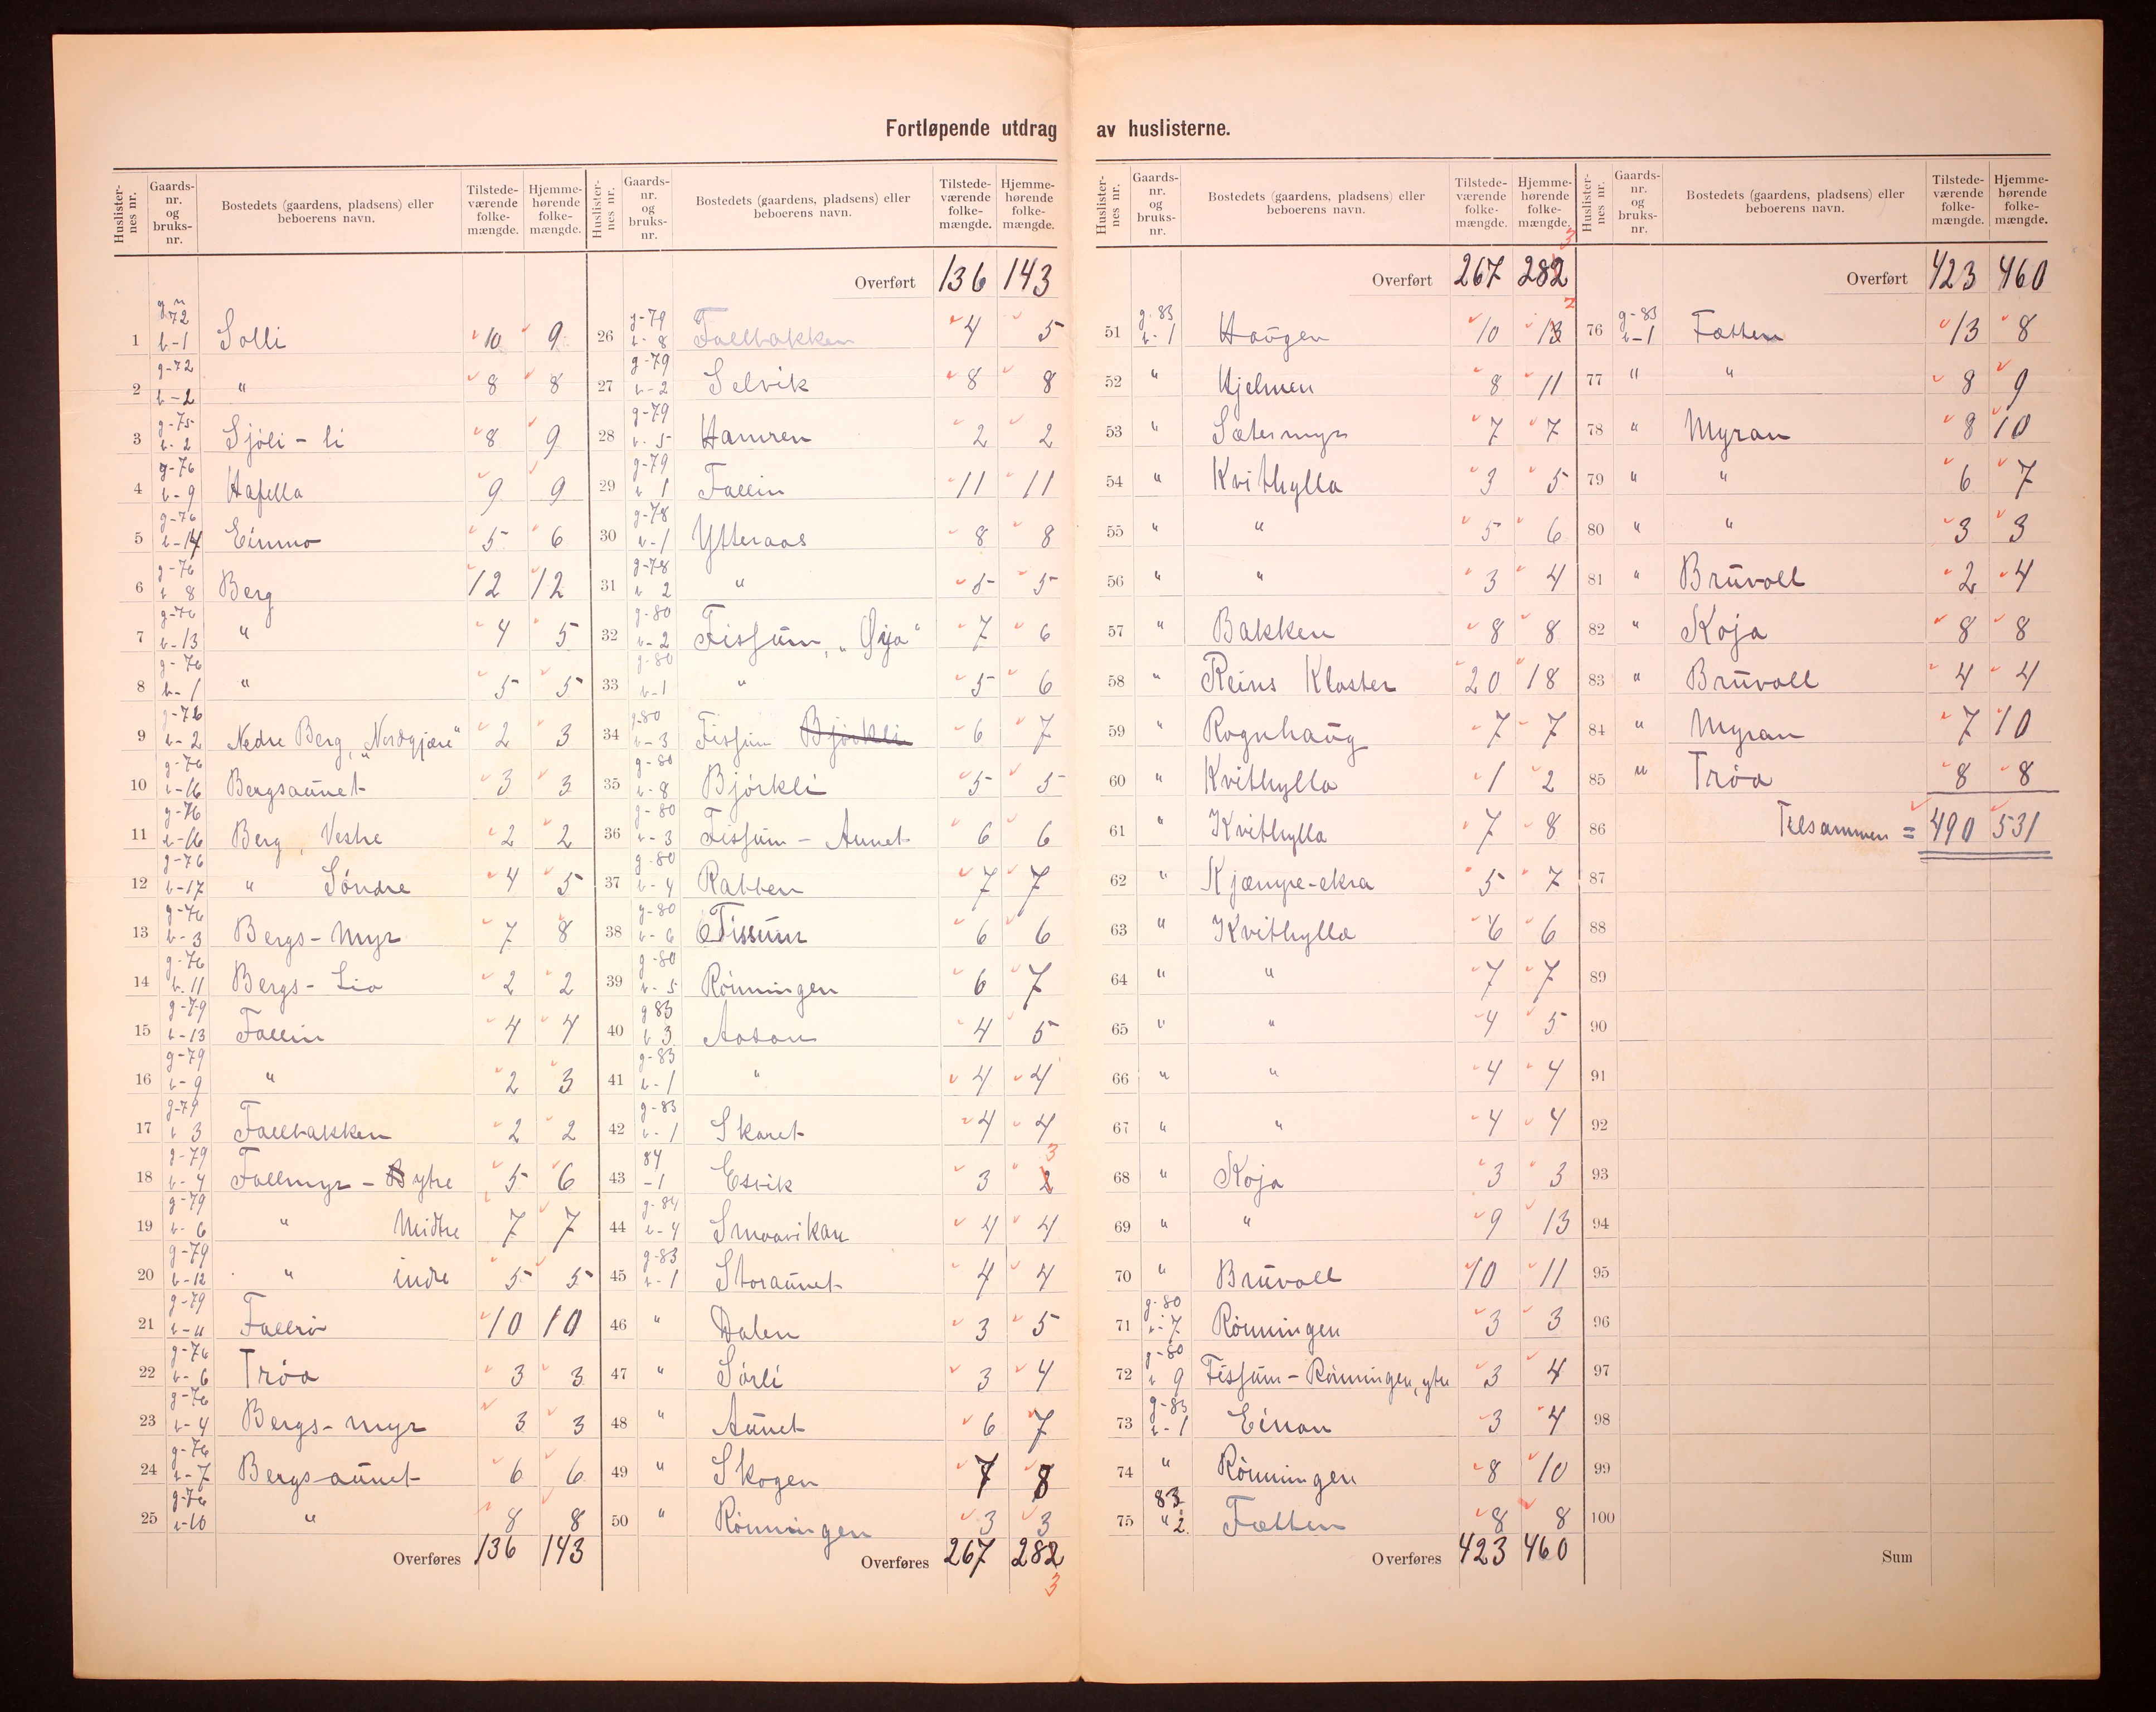 Fortløpende utdrag av huslisterne.
Huslister-nes nr. | Gaards-nr. og bruks-nr. | Bostedets (gaardens, pladsens) eller beboerens navn. | Tilstede-værende folke-mængde. | Hjemme-hørende folke-mængde.
1 g n 72 b-1 Solli 10 9
2 g-72 b-2 " 8 8
3 g-75 b-2 Sjöli-li 8 9
4 g-76 b-9 Hafella 9 9
5 g-76 b-14 Einmo 5 6
6 g-76 b 8 Berg 12 12
7 g-76 b-13 " 4 5
8 g-76 b-1 " 5 5
9 g-76 b-2 Nedre Berg, „Nordgjære" 2 3
10 g-76 b-16 Bergsaunet 3 3
11 g-76 b-16 Berg, Vestre 2 2
12 g-76 b-17 " Söndre 4 5
13 g-76 b-3 Bergs-Myr 7 8
14 g-76 b.11 Bergs-Lia 2 2
15 g-79 b-13 Fallin 4 4
16 g-79 b-9 " 2 3
17 g-79 b 3 Fallbakken 2 2
18 g-79 b-4 Fallmyr - ytre 5 6
19 g-79 b-6 " Midtre 7 7
20 g-79 b-12 " indre 5 5
21 g-79 b-11 Fallrö 10 10
22 g-76 b-6 Tröa 3 3
23 g-76 b-4 Bergs-myr 3 3
24 g-76 b-7 Bergsaunet 6 6
25 g-76 b-10 " 8 8
Overføres 136 143
Huslister-nes nr. | Gaards-nr. og bruks-nr. | Bostedets (gaardens, pladsens) eller beboerens navn. | Tilstede-værende folke-mængde. | Hjemme-hørende folke-mængde.
Overført 136 143
26 g-79 b-8 Fallbakken 4 5
27 g-79 b-2 Selvik 8 8
28 g-79 b-5 Hamren 2 2
29 g-79 b 1 Fallin 11 11
30 g-78 b-1 Ytteraas 8 8
31 g-78 b 2 " 5 5
32 g-80 b-2 Fissum, „Øya" 7 6
33 g-80 b-1 " 5 6
34 g-80 b-3 Fissum Björkli 6 7
35 g-80 b-8 Björkli 5 5
36 g-80 b-3 Fissum - Aunet 6 6
37 g-80 b-4 Rabben 7 7
38 g-80 b-6 Fissum 6 6
39 g-80 b-5 Rönningen 6 7
40 g 83 b 3 Aasan 4 5
41 g-83 b-1 " 4 4
42 g-83 b-1 Skaret 4 4
43 84 -1 Esvik 3 2 3
44 g-84 b-4 Smaavikan 4 4
45 g-83 b-1 Storaunet 4 4
46 " Dalen 3 5
47 " Sörli 3 4
48 " Aunet 6 7
49 " Skogen 7 8
50 " Rönningen 3 3
Overføres 267 282
3
Huslister-nes nr. | Gaards-nr. og bruks-nr. | Bostedets (gaardens, pladsens) eller beboerens navn. | Tilstede-værende folke-mængde. | Hjemme-hørende folke-mængde.
3
Overført 267 282
51 g.83 b-1 Haugen 10 13 2
52 " Hjelmen 8 11
53 " Sætermyr 7 7
54 " Kvithylla 3 5
55 " " 5 6
56 " " 3 4
57 " Bakken 8 8
58 " Reins Kloster 20 18
59 " Rognhaug 7 7
60 " Kvithylla 1 2
61 " Kvithylla 7 8
62 " Kjæmpe-ekra 5 7
63 " Kvithylla 6 6
64 " " 7 7
65 " " 4 5
66 " " 4 4
67 " " 4 4
68 " Koja 3 3
69 " " 9 13
70 " Bruvoll 10 11
71 g-80 b-7 Rönningen 3 3
72 g-80 b 9 Fissum-Rönningen, ytre 3 4
73 g-83 b-1 Einan 3 4
74 " Rönningen 8 10
75 83 " 2. Fætten 8 8
Overføres 423 460
Huslister-nes nr. | Gaards-nr. og bruks-nr. | Bostedets (gaardens, pladsens) eller beboerens navn. | Tilstede-værende folke-mængde. | Hjemme-hørende folke-mængde.
Overført 423 460
76 g-83 b-1 Fætten 13 8
77 " " 8 9
78 " Myran 8 10
79 " " 6 7
80 " " 3 3
81 " Bruvoll 2 4
82 " Koja 8 8
83 " Bruvoll 4 4
84 " Myran 7 10
85 " Tröa 8 8
86 Tilsammen = 490 531
87
88
89
90
91
92
93
94
95
96
97
98
99
100
Sum